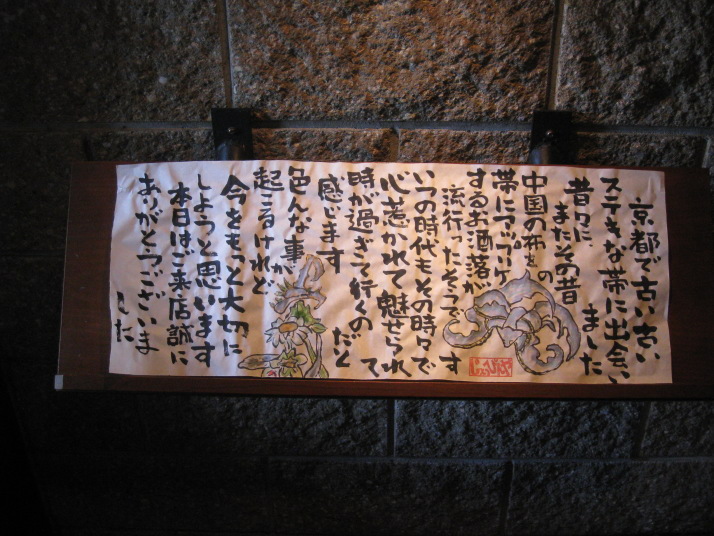 京都で古い古い
ステキな帯に出会い
ました
昔々に
またその昔
中国の布を
帯にアップリケ
するお酒落が
流行ったそうです
いつの時代もその時々で
心惹かれて魅せられて
時が過ぎて行くのだと
感じます
色んな事が
起こるけれど
今をもっと大切に
しようと思います
本日はご来店誠に
ありがとうございま
した